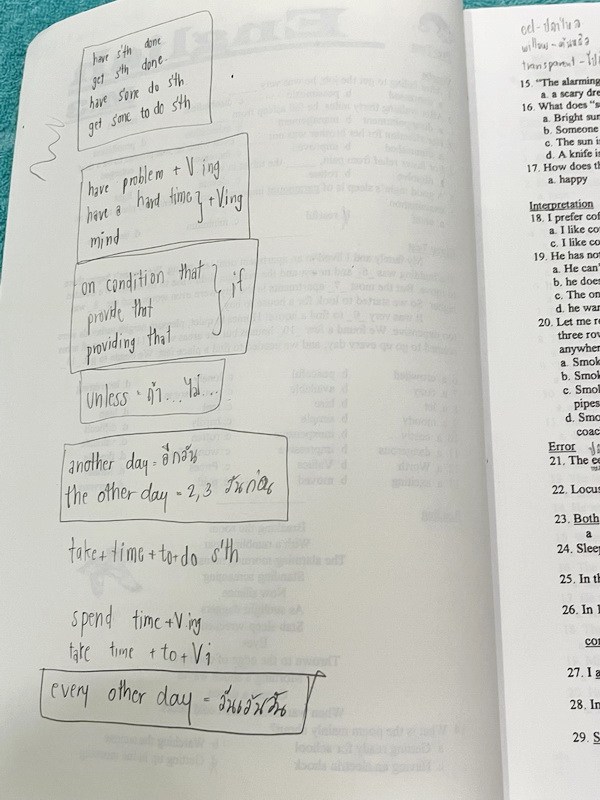 have s'th done
get s'th done.
have s'one do s'th
get s'one to do s'th
have problem + V ing
have a hard time } + Ving
mind
on condition that
provide that
providing that
} if
unless = ถ้า...ไม่...
another day = อีกวัน
the other day = 2, 3 วันก่อน
take + time + to + do s'th
spend time + V.ing
take time + to + V1
every other day = วันเว้นวัน
eel - ปลาไหล
willow -
transparent -
15. "The alarming
a. a scary dre
16. What does "s
a. Bright sun
b. Someone
c. The sun i
d. A knife i
17. How does th
a. happy
Interpretation
18. I prefer cof
a. I like co
c. I like co
19. He has not
a. He can'
b. he does
c. The on
d. he wan
20. Let me r
three rov
anywher
a. Smok
b. Smok
c. Smol
pipes
d. Smo
coac
Error
21. The ec
22. Locus
23. Both
a
24. Sleep
25. In th
26. In 1
con
27. I a
28. In
29. S